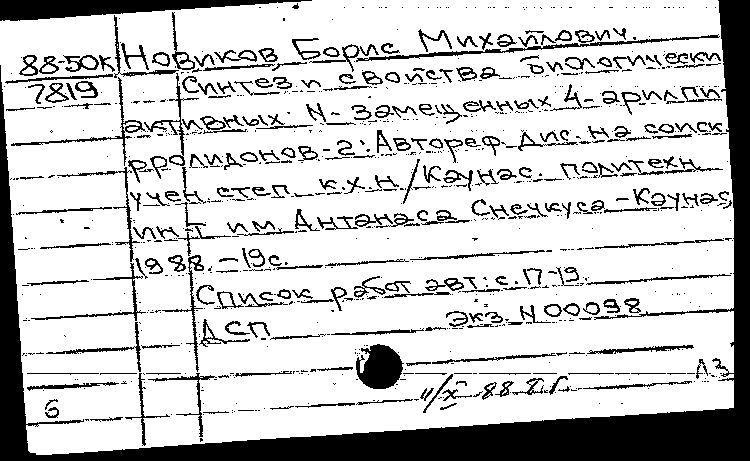 88-50к Новиков Борис Михайлович.
7819 Синтез и свойства биологически
активных N-замещенных 4-арилпи-
рролидонов-2: Автореф. дис. на соиск.
учен. степ. к.х.н. / Каунас. политехн.
ин-т им. Антанаса Снечкуса - Каунас,
1988. - 19с.
Список работ авт.: с. 17-19.
ДСП Экз. N 00098
Л3
6 11/X 88